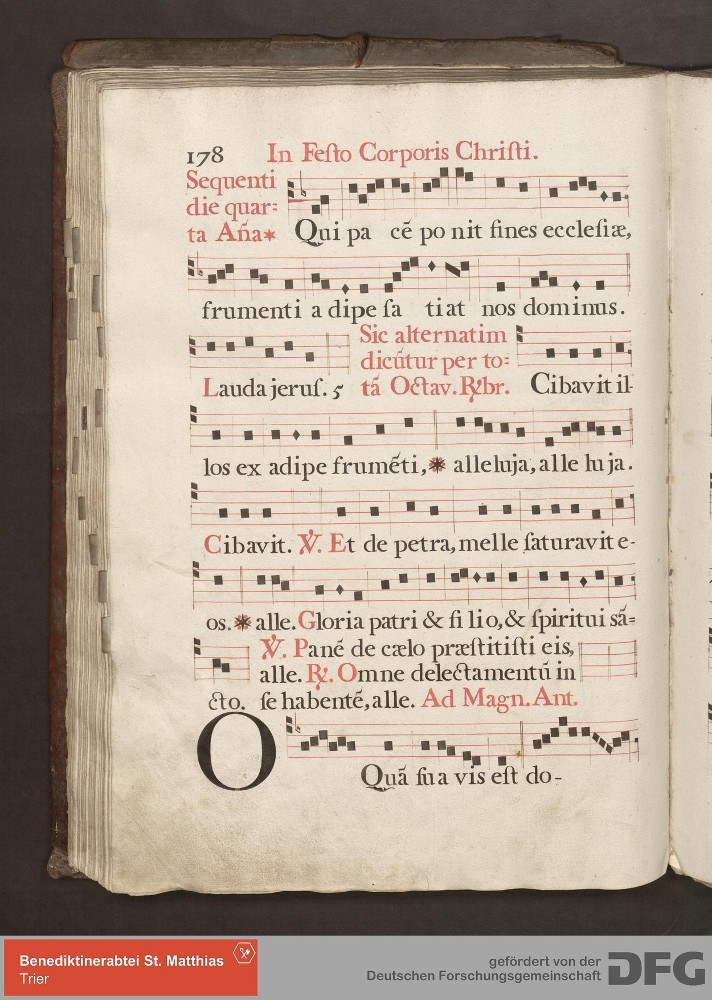 178 In Feſto Corporis Chriſti.
Sequenti
die quar=
ta Aña*
Qui pa cē po nit fines eccleſiæ,
frumenti a dipe ſa tiat nos dominus.
Lauda jeruſ. 5
Sic alternatim
dicūtur per to=
tā Octav. ℟br.
Cibavit il-
los ex adipe frumēti, * alleluja, alle lu ja.
Cibavit. ℣. Et de petra, melle ſaturavit e-
os. * alle. Gloria patri & fi lio, & ſpiritui sā=
cto.
℣. Panē de cælo præſtitiſti eis,
alle. ℟. Omne delectamentū in
ſe habentē, alle. Ad Magn. Ant.
O Quā ſua vis eſt do-
Benediktinerabtei St. Matthias
Trier
gefördert von der
Deutschen Forschungsgemeinschaft
DFG